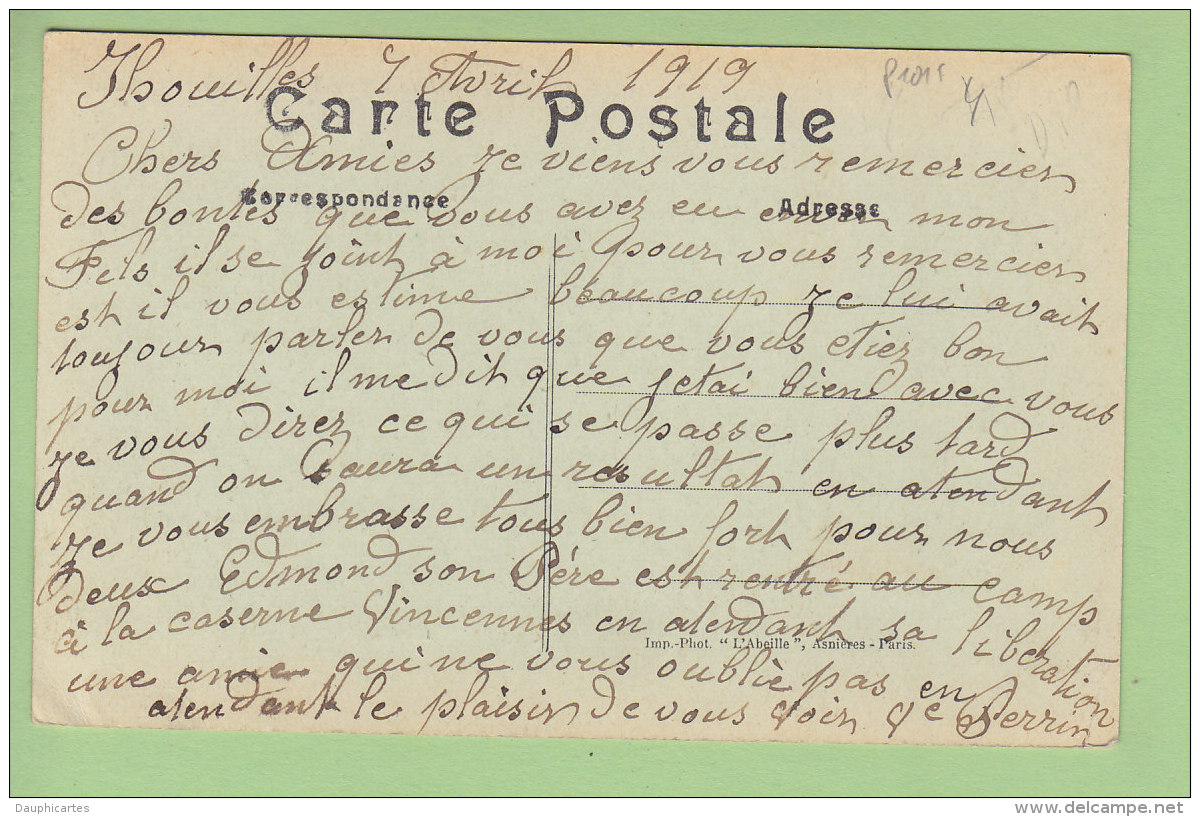 Thouilles 7 Avril 1919
Carte Postale
Chers Amies je viens vous remercier
Correspondance
Adresse
des bontés que vous avez eu mon
Fils il se joint à moi pour vous remercier
est il vous estime beaucoup je lui avait
toujour parler de vous que vous etiez bon
pour moi il me dit que jetai bien avec vous
je vous direz ce qui se passe plus tard
quand on saura un resultat en atendant
je vous embrasse tous bien fort pour nous
deux Edmond son Pére est rentré au camp
à la caserne Vincennes en atendant sa liberation
Imp.-Phot. "L'Abeille", Asnières - Paris.
une amie qui ne vous oublie pas en
atendant le plaisir de vous voir Ve Perrin
Dauphicartes
delcampe.net